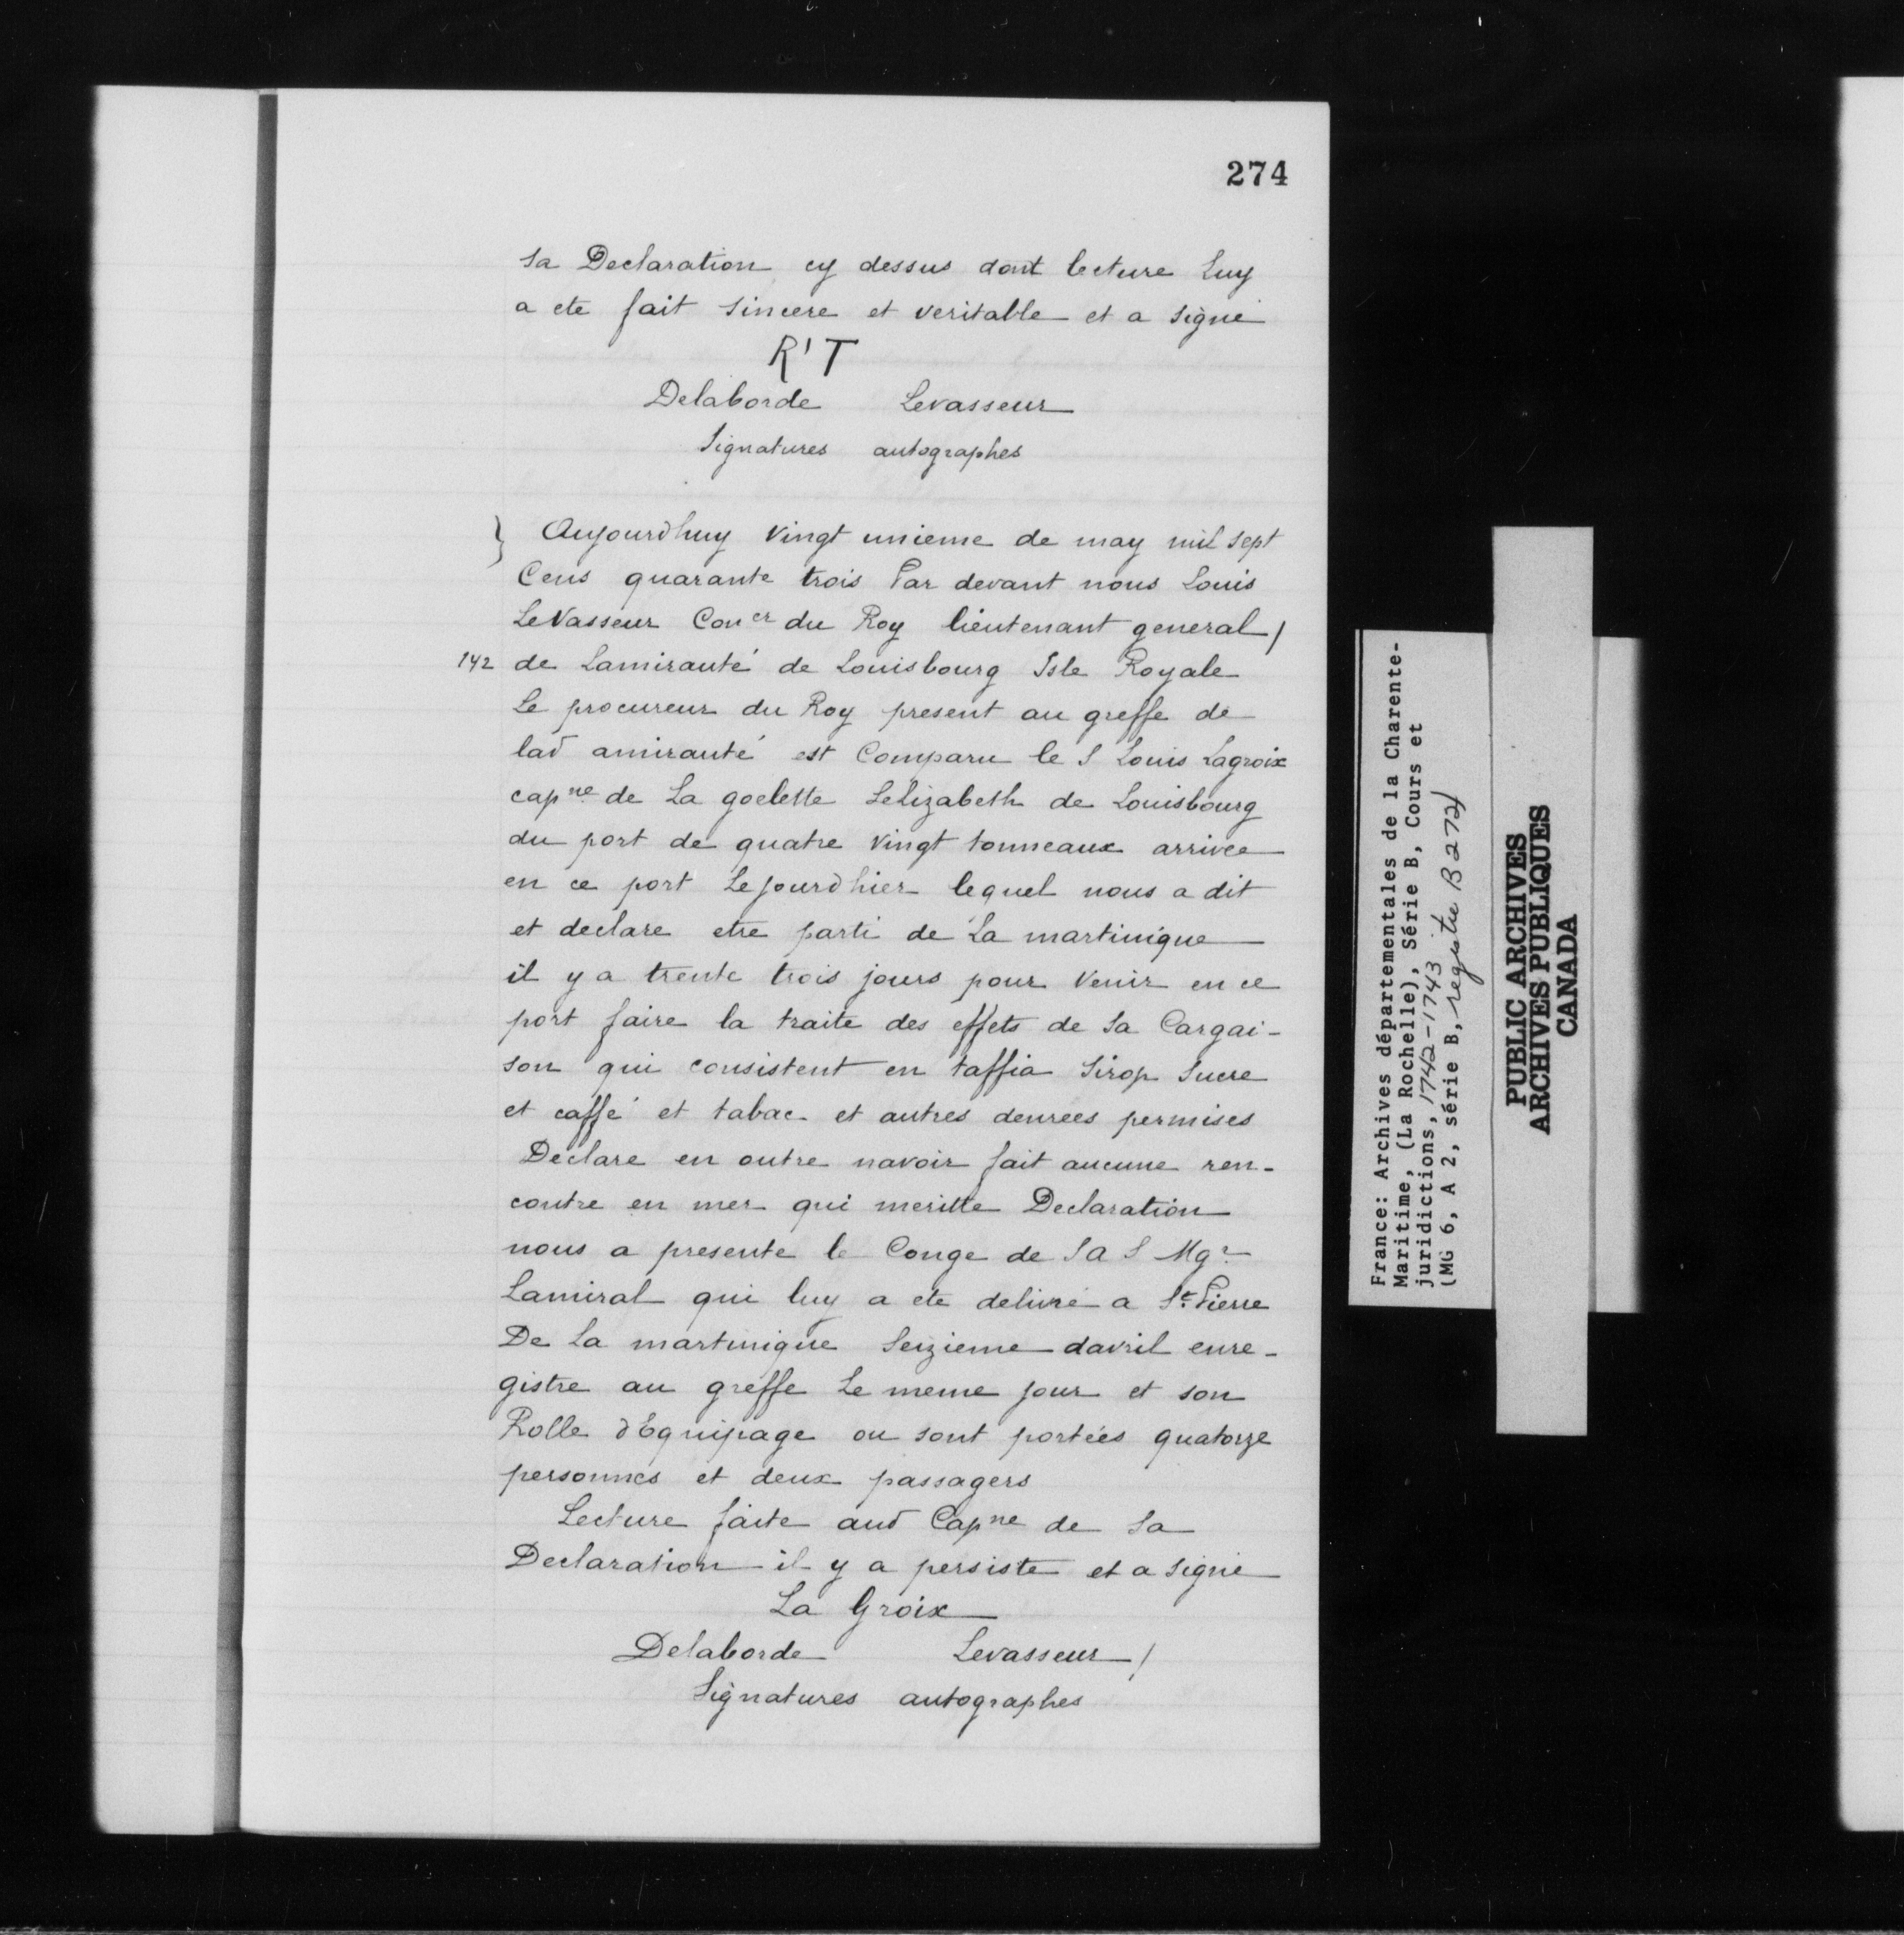 274
sa Declaration cy dessus dont lecture Luy
a ete fait sincere et veritable et a signé
R'T
Delaborde Levasseur
Signatures autographes
Aujourdhuy vingt unieme de may mil sept
Cens quarante trois Par devant nous Louis
LeVasseur Con er du Roy lieutenant general /
142 de Lamirauté de Louisbourg Isle Royale
Le procureur du Roy present au greffe de
lad amirauté est Comparu le S Louis Lagroix
cap ne de La goelette Lelizabeth de Louisbourg
du port de quatre vingt tonneaux arrivee
en ce port Lejourdhier lequel nous a dit
et declare etre parti de La martinique
il y a trente trois jours pour venir en ce
port faire la traite des effets de sa Cargai-
son qui consistent en taffia sirop sucre
et caffé et tabac et autres denrees permises
Declare en outre navoir fait aucune ren-
contre en mer qui meritte Declaration
nous a presente le Conge de S a S Mgr
Lamiral qui luy a ete delivré a St. Pierre
De La martinique seizieme davril enre-
gistre au greffe Le meme jour et son
Rolle dEquipage ou sont portées quatorze
personnes et deux passagers
Lecture faite aud Capne de sa
Declaration il y a persiste et a signé
La Groix
Delaborde Levasseur /
Signatures autographes
France: Archives départementales de la Charente-
Maritime, (La Rochelle), Série B, Cours et
juridictions, 1742-1743
(MG 6, A 2, série B, registre B 272)
PUBLIC ARCHIVES
ARCHIVES PUBLIQUES
CANADA